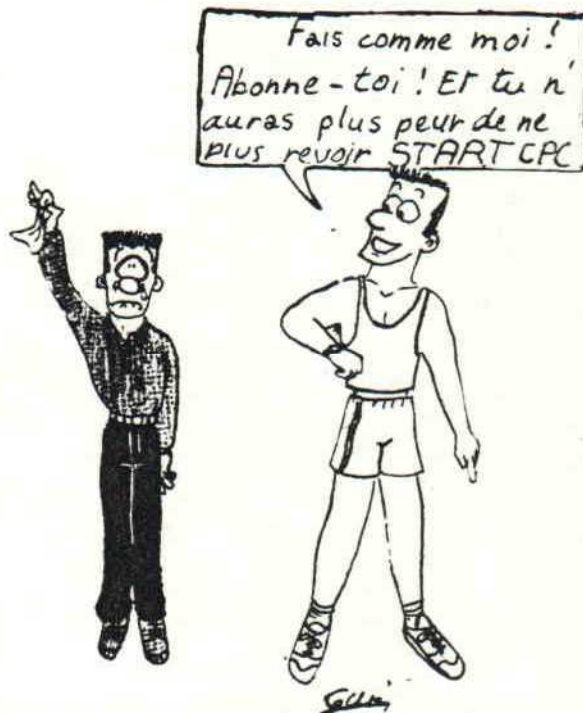 Fais comme moi !
Abonne-toi ! Et tu n'
auras plus peur de ne
plus revoir START CPC